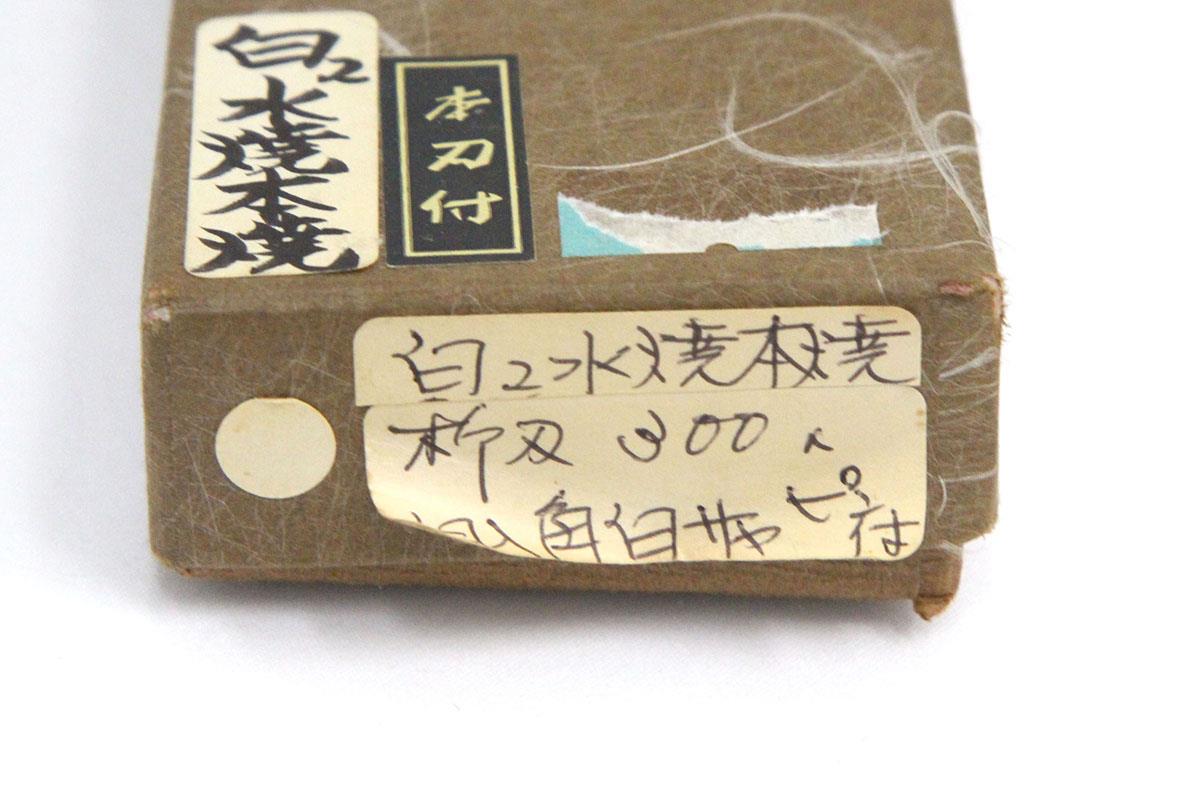 白2
水焼本焼
本刃付
白2水焼本焼
柳刃 300
角白サヤピン付